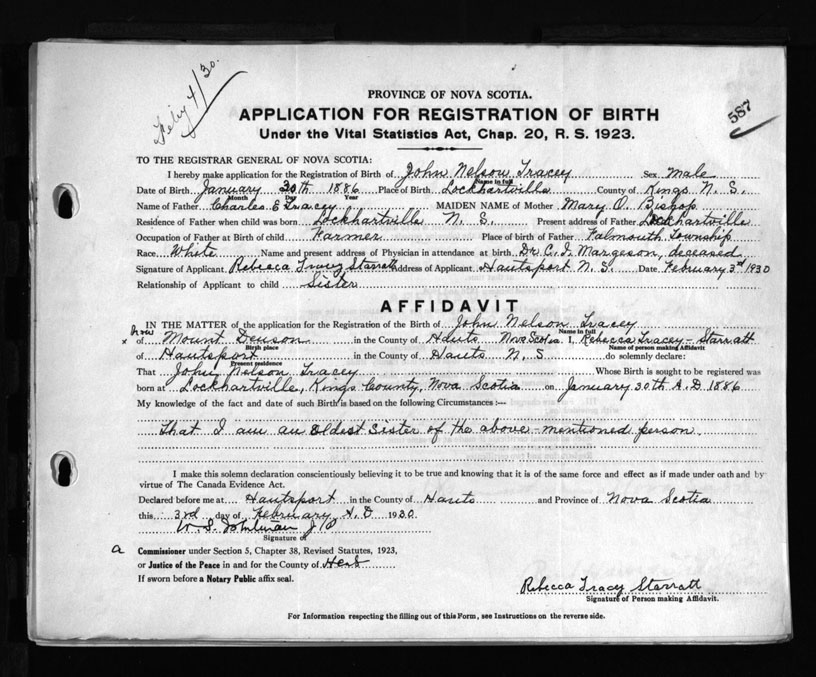 Feby 4/30.
587
PROVINCE OF NOVA SCOTIA.
APPLICATION FOR REGISTRATION OF BIRTH
Under the Vital Statistics Act, Chap. 20, R. S. 1923.
TO THE REGISTRAR GENERAL OF NOVA SCOTIA:
I hereby make application for the Registration of Birth of John Nelson Tracey Sex Male
Name in full
Date of Birth January 30th 1886 Place of Birth Lockhartville County of Kings N. S.
Month Day Year
Name of Father Charles E Tracey MAIDEN NAME of Mother Mary O. Bishop
Residence of Father when child was born Lockhartville N. S. Present address of Father Lockhartville
Occupation of Father at Birth of child Farmer Place of birth of Father Falmouth Township
Race White Name and present address of Physician in attendance at birth Dr. C. I. Margeson, deceased
Signature of Applicant Rebecca Tracy Starratt Address of Applicant Hantsport N. S. Date February 3rd 1930
Relationship of Applicant to child Sister
AFFIDAVIT
IN THE MATTER of the application for the Registration of the Birth of John Nelson Tracey
Name in full
x of Mount Denson in the County of Hants Nova Scotia I, Rebecca Tracey-Starratt
Birth place Name of person making Affidavit
of Hantsport in the County of Hants N. S do solemnly declare:
Present residence
That John Nelson Tracey Whose Birth is sought to be registered was
born at Lockhartville, Kings County, Nova Scotia on January 30th A. D 1886
My knowledge of the fact and date of such Birth is based on the following Circumstances:—
That I am an Eldest Sister of the above-mentioned person.
I make this solemn declaration conscientiously believing it to be true and knowing that it is of the same force and effect as if made under oath and by
virtue of The Canada Evidence Act.
Declared before me at Hantsport in the County of Hants and Province of Nova Scotia
this 3rd day of February A. D 1930
W. S. J P
Signature of
a Commissioner under Section 5, Chapter 38, Revised Statutes, 1923,
or Justice of the Peace in and for the County of
If sworn before a Notary Public affix seal.
Rebecca Tracy Starratt
Signature of Person making Affidavit.
For Information respecting the filling out of this Form, see Instructions on the reverse side.